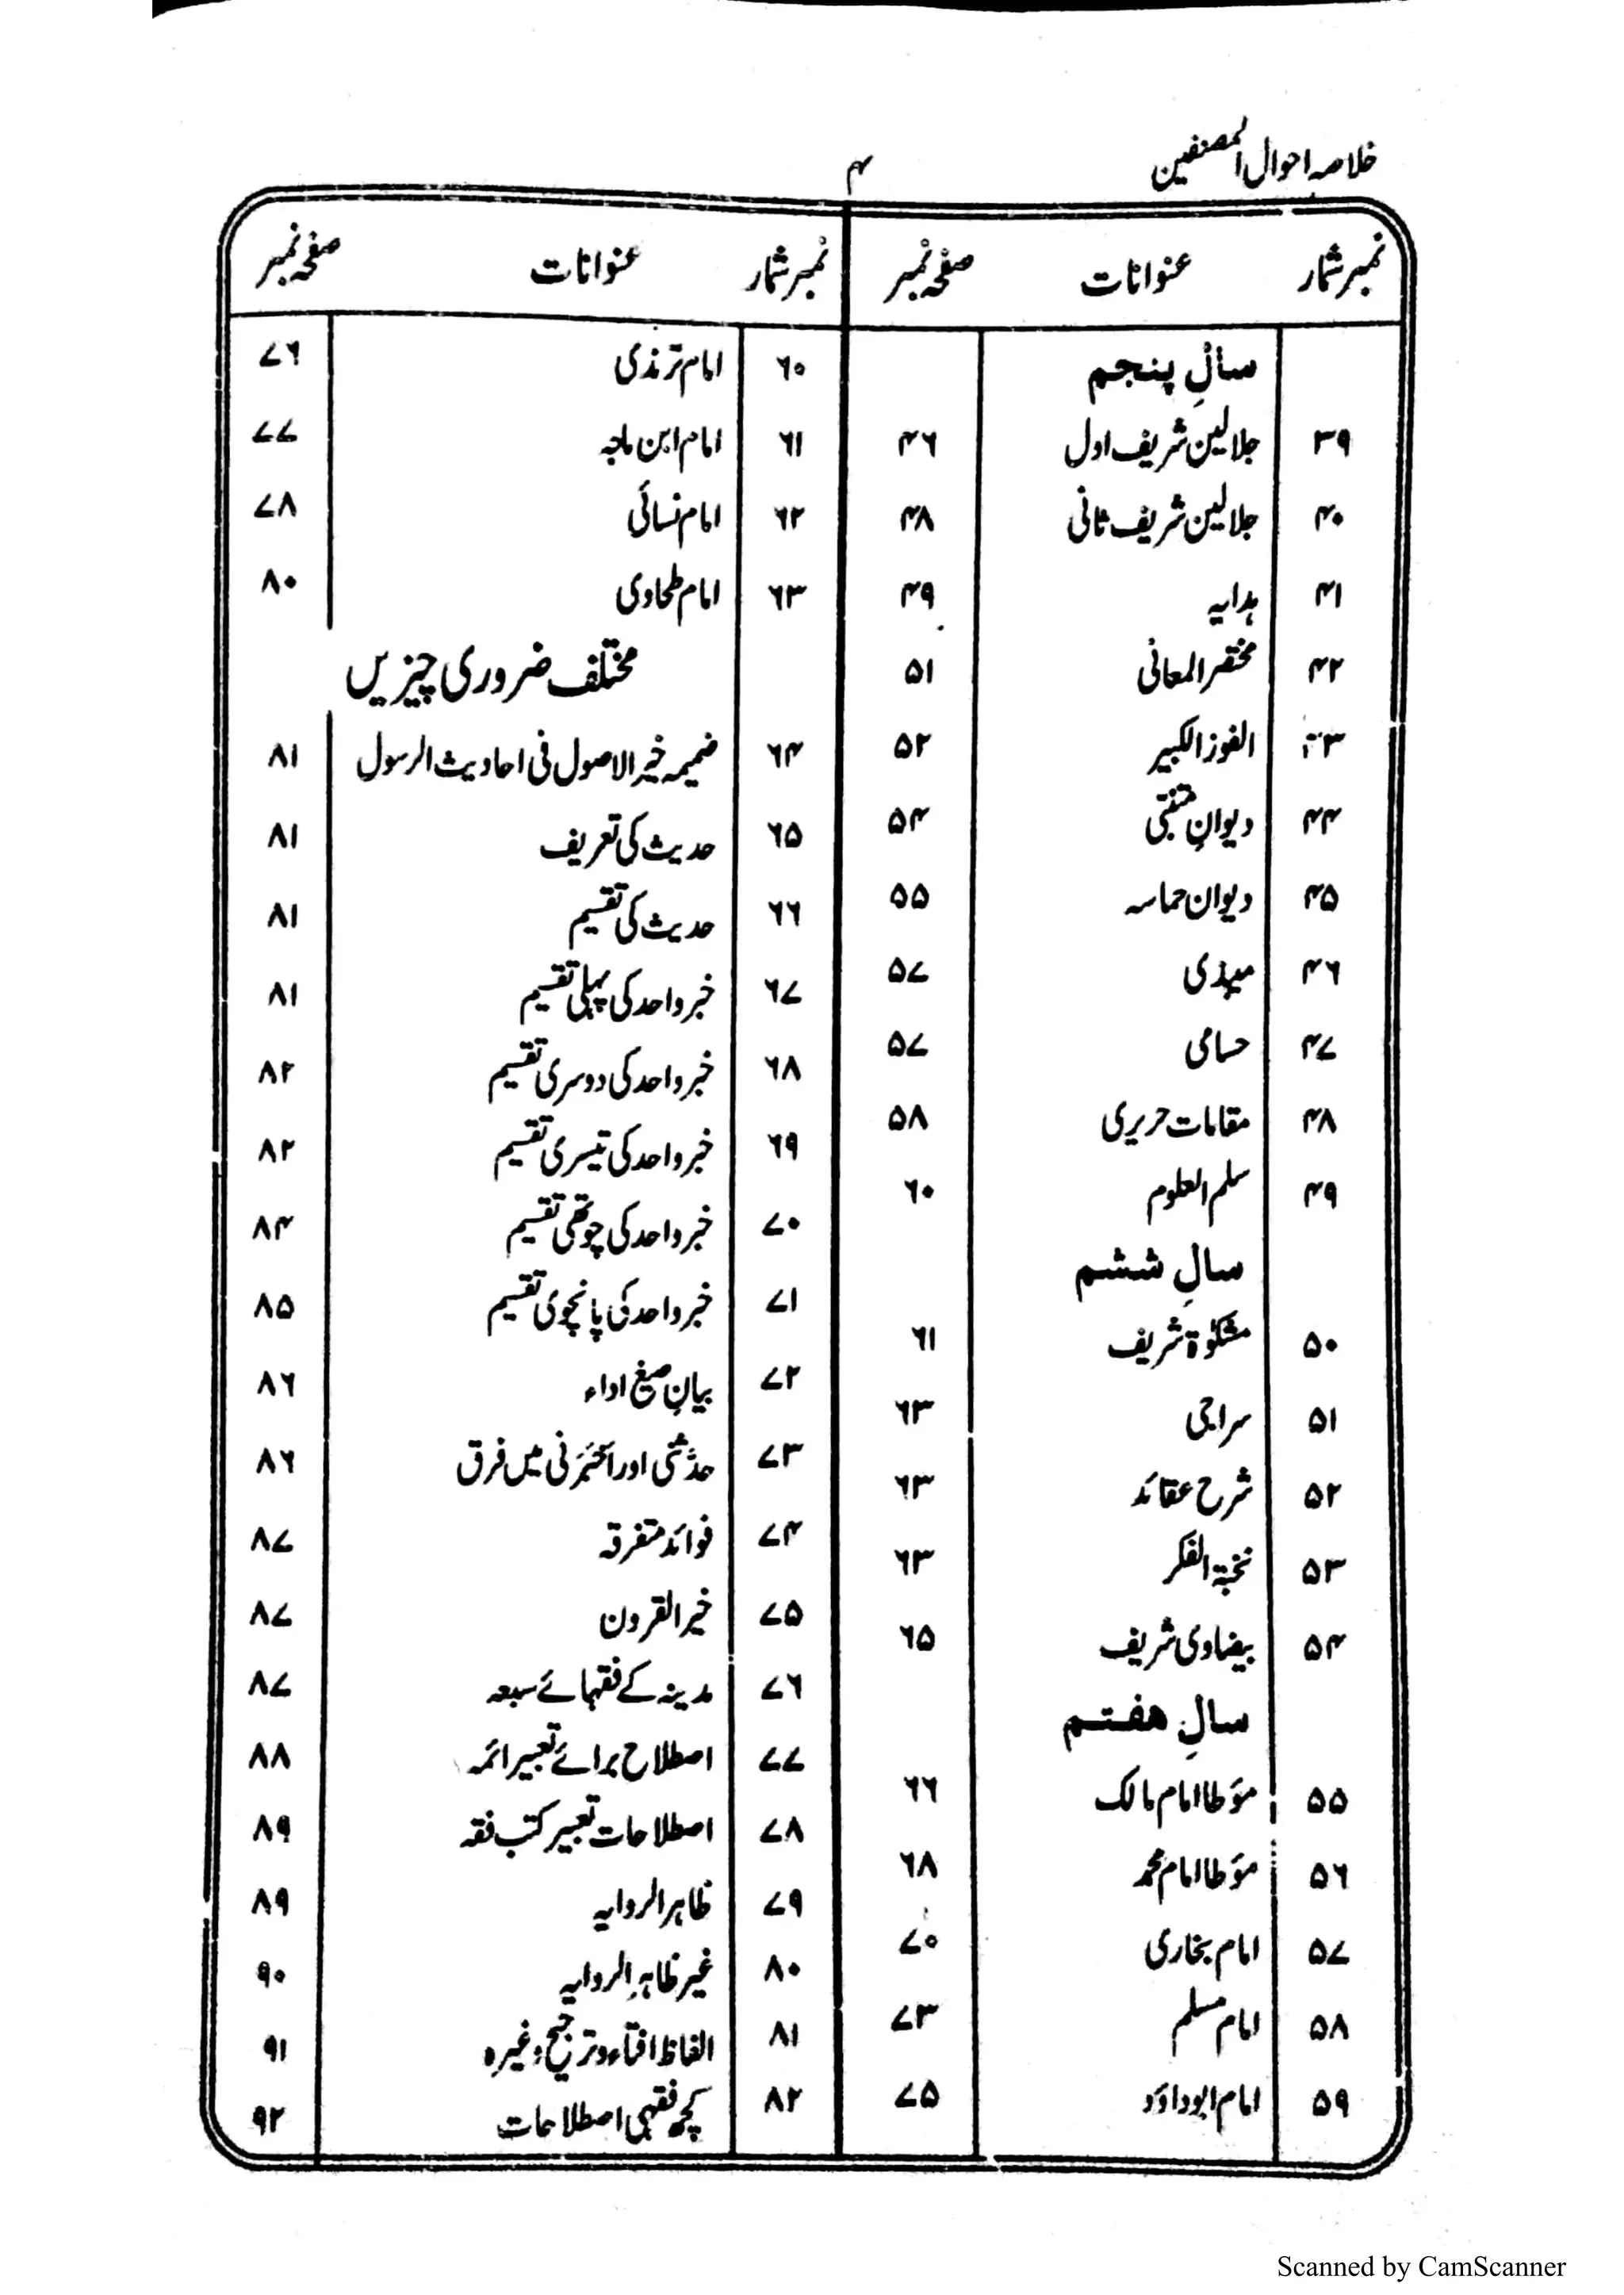 خلاصہ احوال المصنفین
۴
نمبر شمار عنوانات صفحہ نمبر
سالِ پنجم
۳۹ جلالین شریف اول ۴۶
۴۰ جلالین شریف ثانی ۴۸
۴۱ ہدایہ ۴۹
۴۲ مختصر المعانی ۵۱
۴۳ الفوز الکبیر ۵۲
۴۴ دیوانِ متنبّی ۵۴
۴۵ دیوان حماسہ ۵۵
۴۶ میبذی ۵۷
۴۷ حسامی ۵۷
۴۸ مقامات حریری ۵۸
۴۹ سلم العلوم ۶۰
سالِ ششم
۵۰ مشکوٰۃ شریف ۶۱
۵۱ سراجی ۶۳
۵۲ شرح عقائد ۶۳
۵۳ نخبۃ الفکر ۶۳
۵۴ بیضاوی شریف ۶۵
سالِ ہفتم
۵۵ مؤطا امام مالک ۶۶
۵۶ مؤطا امام محمد ۶۸
۵۷ امام بخاری ۷۰
۵۸ امام مسلم ۷۳
۵۹ امام ابوداؤد ۷۵
نمبر شمار عنوانات صفحہ نمبر
۶۰ امام ترمذی ۷۶
۶۱ امام ابن ماجہ ۷۷
۶۲ امام نسائی ۷۸
۶۳ امام طحاوی ۸۰
مختلف ضروری چیزیں
۶۴ ضمیمہ خیر الاصول فی احادیث الرسول ۸۱
۶۵ حدیث کی تعریف ۸۱
۶۶ حدیث کی تقسیم ۸۱
۶۷ خبر واحد کی پہلی تقسیم ۸۱
۶۸ خبر واحد کی دوسری تقسیم ۸۲
۶۹ خبر واحد کی تیسری تقسیم ۸۲
۷۰ خبر واحد کی چوتھی تقسیم ۸۴
۷۱ خبر واحد کی پانچوی تقسیم ۸۵
۷۲ بیانِ صیغ اداء ۸۶
۷۳ حدَّثنی اور أخبَرنی میں فرق ۸۶
۷۴ فوائد متفرقہ ۸۷
۷۵ خیر القرون ۸۷
۷۶ مدینہ کے فقہائے سبعہ ۸۷
۷۷ اصطلاح برائے تعبیر ائمہ ۸۸
۷۸ اصطلاحات تعبیر کتب فقہ ۸۹
۷۹ ظاہر الروایہ ۸۹
۸۰ غیر ظاہر الروایہ ۹۰
۸۱ الفاظ افتاء و ترجیح وغیرہ ۹۱
۸۲ کچھ فقہی اصطلاحات ۹۲
Scanned by CamScanner